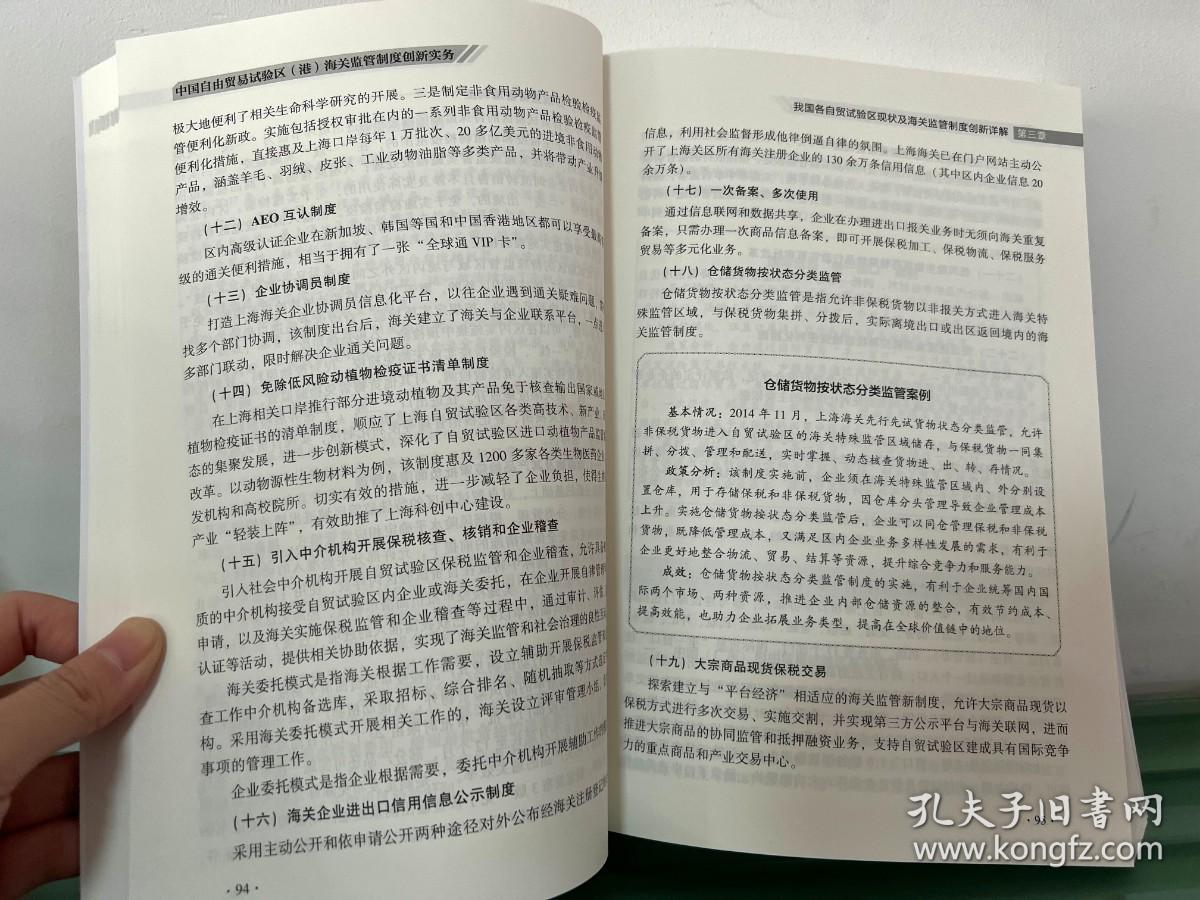 中国自由贸易试验区（港）海关监管制度创新实务
极大地便利了相关生命科学研究的开展。三是制定非食用动物产品检验检疫
管便利化新政。实施包括授权审批在内的一系列非食用动物产品检验检疫监管
便利化措施，直接惠及上海口岸每年 1 万批次、20 多亿美元的进境非食用动物
产品，涵盖羊毛、羽绒、皮张、工业动物油脂等多类产品，并将带动产业升级
增效。
（十二）AEO 互认制度
区内高级认证企业在新加坡、韩国等国和中国香港地区都可以享受最高
级的通关便利措施，相当于拥有了一张 “全球通 VIP 卡”。
（十三）企业协调员制度
打造上海海关企业协调员信息化平台，以往企业遇到通关疑难问题，需
找多个部门协调，该制度出台后，海关建立了海关与企业联系平台，一点进
多部门联动，限时解决企业通关问题。
（十四）免除低风险动植物检疫证书清单制度
在上海相关口岸推行部分进境动植物及其产品免于核查输出国家或地
植物检疫证书的清单制度，顺应了上海自贸试验区各类高技术、新产业、
态的集聚发展，进一步创新模式，深化了自贸试验区进口动植物产品监管
改革。以动物源性生物材料为例，该制度惠及 1200 多家各类生物医药企
发机构和高校院所。切实有效的措施，进一步减轻了企业负担，使得生
产业 “轻装上阵”，有效助推了上海科创中心建设。
（十五）引入中介机构开展保税核查、核销和企业稽查
引入社会中介机构开展自贸试验区保税监管和企业稽查，允许具备
质的中介机构接受自贸试验区内企业或海关委托，在企业开展自律管理
申请，以及海关实施保税监管和企业稽查等过程中，通过审计、评估、
认证等活动，提供相关协助依据，实现了海关监管和社会治理的良性互
海关委托模式是指海关根据工作需要，设立辅助开展保税监管
查工作中介机构备选库，采取招标、综合排名、随机抽取等方式选
构。采用海关委托模式开展相关工作的，海关设立评审管理小组，
事项的管理工作。
企业委托模式是指企业根据需要，委托中介机构开展辅助工作的
（十六）海关企业进出口信用信息公示制度
采用主动公开和依申请公开两种途径对外公布经海关注册登记
· 94 ·
我国各自贸试验区现状及海关监管制度创新详解 第三章
信息，利用社会监督形成他律倒逼自律的氛围。上海海关已在门户网站主动公
开了上海关区所有海关注册企业的 130 余万条信用信息（其中区内企业信息 20
余万条）。
（十七）一次备案、多次使用
通过信息联网和数据共享，企业在办理进出口报关业务时无须向海关重复
备案，只需办理一次商品信息备案，即可开展保税加工、保税物流、保税服务
贸易等多元化业务。
（十八）仓储货物按状态分类监管
仓储货物按状态分类监管是指允许非保税货物以非报关方式进入海关特
殊监管区域，与保税货物集拼、分拨后，实际离境出口或出区返回境内的海
关监管制度。
仓储货物按状态分类监管案例
基本情况：2014 年 11 月，上海海关先行先试货物状态分类监管，允许
非保税货物进入自贸试验区的海关特殊监管区域储存，与保税货物一同集
拼、分拨、管理和配送，实时掌握、动态核查货物进、出、转、存情况。
政策分析：该制度实施前，企业须在海关特殊监管区域内、外分别设
置仓库，用于存储保税和非保税货物，因仓库分头管理导致企业管理成本
上升。实施仓储货物按状态分类监管后，企业可以同仓管理保税和非保税
货物，既降低管理成本，又满足区内企业业务多样性发展的需求，有利于
企业更好地整合物流、贸易、结算等资源，提升综合竞争力和服务能力。
成效：仓储货物按状态分类监管制度的实施，有利于企业统筹国内国
际两个市场、两种资源，推进企业内部仓储资源的整合，有效节约成本、
提高效能，也助力企业拓展业务类型，提高在全球价值链中的地位。
（十九）大宗商品现货保税交易
探索建立与 “平台经济” 相适应的海关监管新制度，允许大宗商品现货以
保税方式进行多次交易、实施交割，并实现第三方公示平台与海关联网，进而
推进大宗商品的协同监管和抵押融资业务，支持自贸试验区建成具有国际竞争
力的重点商品和产业交易中心。
孔夫子旧书网
www.kongfz.com